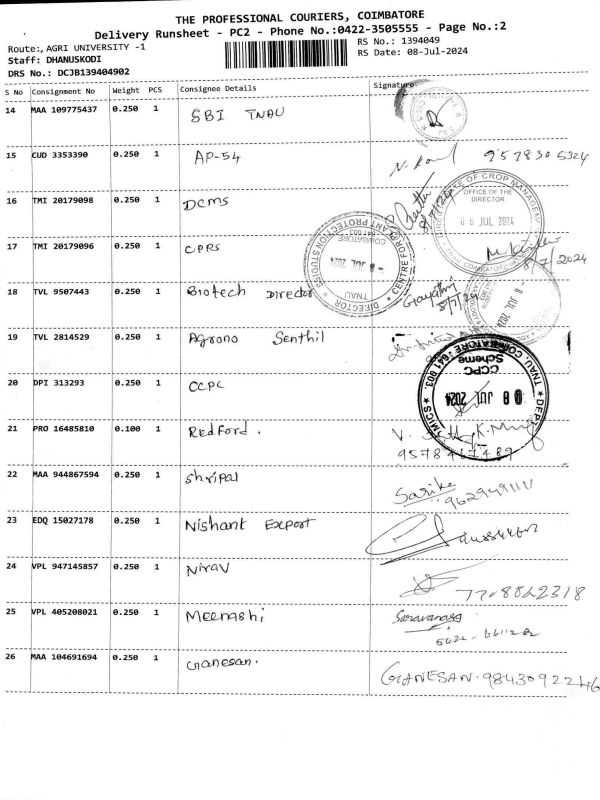 THE PROFESSIONAL COURIERS, COIMBATORE
Delivery Runsheet - PC2 - Phone No.:0422-3505555 - Page No.:2
Route:,AGRI UNIVERSITY -1 RS No.: 1394049
Staff: DHANUSKODI RS Date: 08-Jul-2024
DRS No.: DCJB139404902
S No Consignment No Weight PCS Consignee Details Signature
14 MAA 109775437 0.250 1 SBI TNAU
15 CUD 3353390 0.250 1 AP-54 9578305324
16 TMI 20179098 0.250 1 DCMS 8/7/24
OFFICE OF THE
DIRECTOR
08 JUL 2024
17 TMI 20179096 0.250 1 CPRS 8/7/2024
CENTRE FOR PLANT PROTECTION STUDIES
COIMBATORE
641 003
-8 JUL 2024
TNAU
DIRECTOR
18 TVL 9507443 0.250 1 Biotech Director Gayathri 8/7/24
8 JUL 2024
19 TVL 2814529 0.250 1 Agrono Senthil
TNAU, COIMBATORE - 641 003.
CCPC
Scheme
08 JUL 2024
20 DPI 313293 0.250 1 CCPC
21 PRO 16485810 0.100 1 Redford.
9578467489
22 MAA 944867594 0.250 1 Shripal Sarika
23 EDQ 15027178 0.250 1 Nishant Export
24 VPL 947145857 0.250 1 Nirav 7708822318
25 VPL 405208021 0.250 1 Meenashi Saravanan
26 MAA 104691694 0.250 1 Ganesan. GANESAN. 9843092246